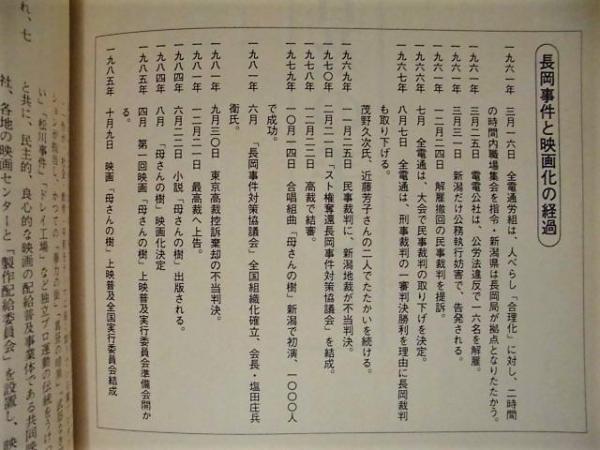 長岡事件と映画化の経過
一九六一年　三月一六日　全電通労組は、人べらし「合理化」に対し、二時間
の時間内職場集会を指令・新潟県は長岡局が拠点となりたたかう。
一九六一年　三月二五日　電電公社は、公労法違反で一六名を解雇。
一九六一年　三月三一日　新潟だけ公務執行妨害で、告発される。
一九六一年　一二月二四日　解雇撤回の民事裁判を提訴。
一九六六年　七月　全電通は、大会で民事裁判の取り下げを決定。
一九六七年　八月七日　全電通は、刑事裁判の一審判決勝利を理由に長岡裁判
も取り下げる。
茂野久次氏、近藤芳子さんの二人でたたかいを続ける。
一九六九年　一一月二五日　民事裁判に、新潟地裁が不当判決。
一九七〇年　二月二一日「スト権奪還長岡事件対策協議会」を結成。
一九七八年　一二月二二日　高裁で結審。
一九七九年　一〇月一四日　合唱組曲「母さんの樹」新潟で初演、一〇〇〇人
で成功。
一九八一年　六月　「長岡事件対策協議会」全国組織化確立、会長・塩田庄兵
衛氏。
一九八一年　九月三〇日　東京高裁控訴棄却の不当判決。
一九八一年　一二月二一日　最高裁へ上告。
一九八四年　六月二二日　小説「母さんの樹」出版される。
一九八四年　八月　「母さんの樹」映画化決定
一九八五年　四月　第一回映画「母さんの樹」上映普及実行委員会準備会開か
る。
一九八五年　十月九日　映画「母さんの樹」上映普及全国実行委員会結成
い」「松川事件」「ドレイ工場」など独立プロ運動の伝統をうけ
と共に、民主的、良心的な映画の配給普及事業体である共同映
社、各地の映画センターと「製作配給委員会」を設置し、映
れ、七